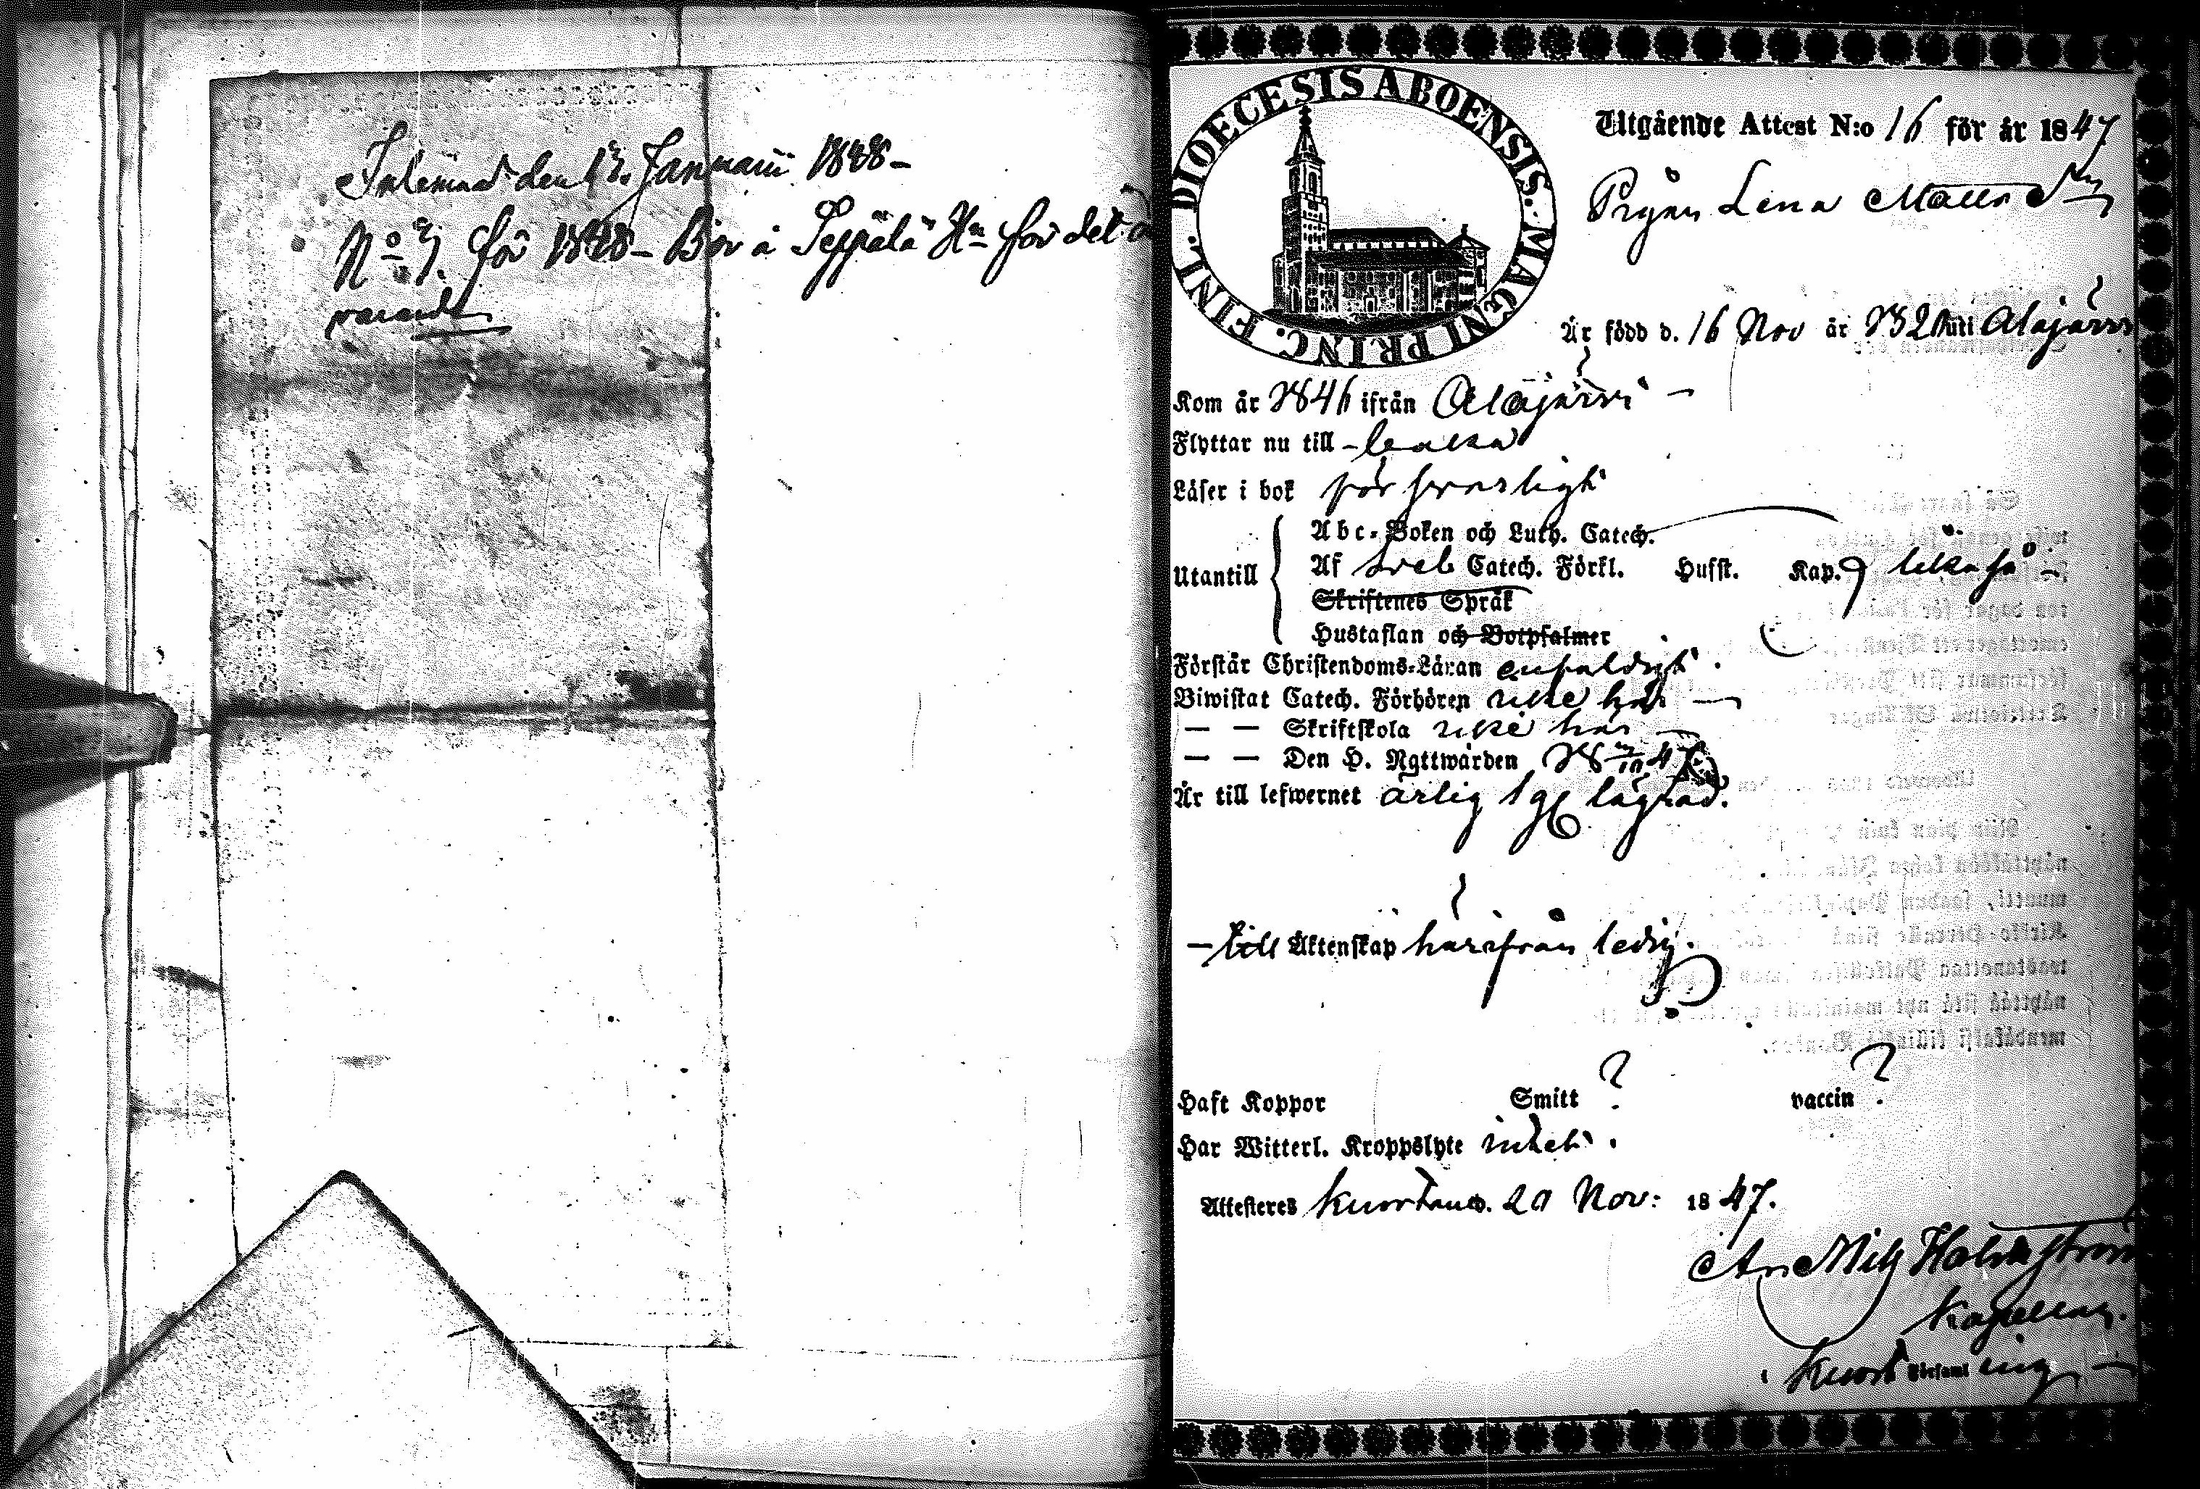 Inlemnad den 12. Januarii 1848 –
No 7. för 1848 – Bor å Seppälä Hn för det
varande
DIOECESIS ABOENSIS. MAGNI PRINC. FINL.
Utgående Attest N:o 16 för år 1847
Pigan Lena Matts Dr
Är född d. 16 Nov år 1821 uti Alajärvi
Kom år 1846 ifrån Alajärvi –
Flyttar nu till –
Läser i bok försvarligt
Abc-Boken och Luth. Catech.
Utantill Af Sveb Catech. Förkl. Hufst. Kap. likaså –
Skriftenes Språk
Hustaflan och Botpsalmer
Förstår Christendoms-Läran enfaldigt.
Biwistat Catech. Förhören icke här –
– – Skriftskola icke här –
– – Den H. Nattwarden 18 47
Är till lefwernet ärlig lägrad.
– till Äktenskap härifrån ledig.
Haft Koppor Smitt ? vaccin ?
Har Witterl. Kroppslyte intet.
Attesteres Kuortane d. 20 Nov: 1847.
Holmström
Kapellan.
Kuort Församl ing –